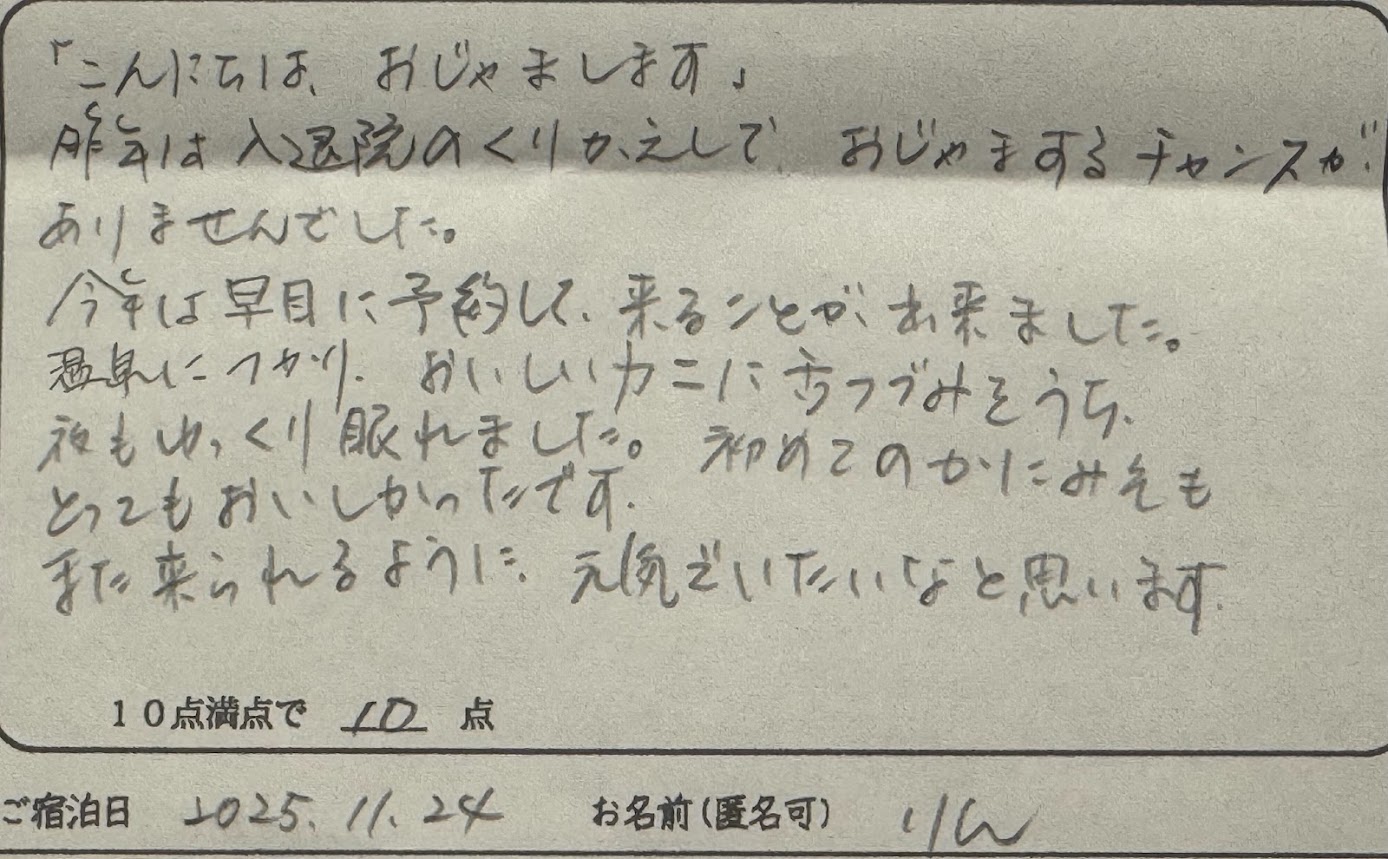 「こんにちは、おじゃまします」
昨年は入退院のくりかえしで、おじゃまするチャンスが
ありませんでした。
今年は早目に予約して、来ることが、出来ました。
温泉につかり、おいしいカニに舌つづみをうち、
夜もゆっくり眠れました。初めてのかにみそも
とってもおいしかったです。
また来られるように、元気でいたいなと思います。
10点満点で 10 点
ご宿泊日 2025.11.24 お名前(匿名可) りん